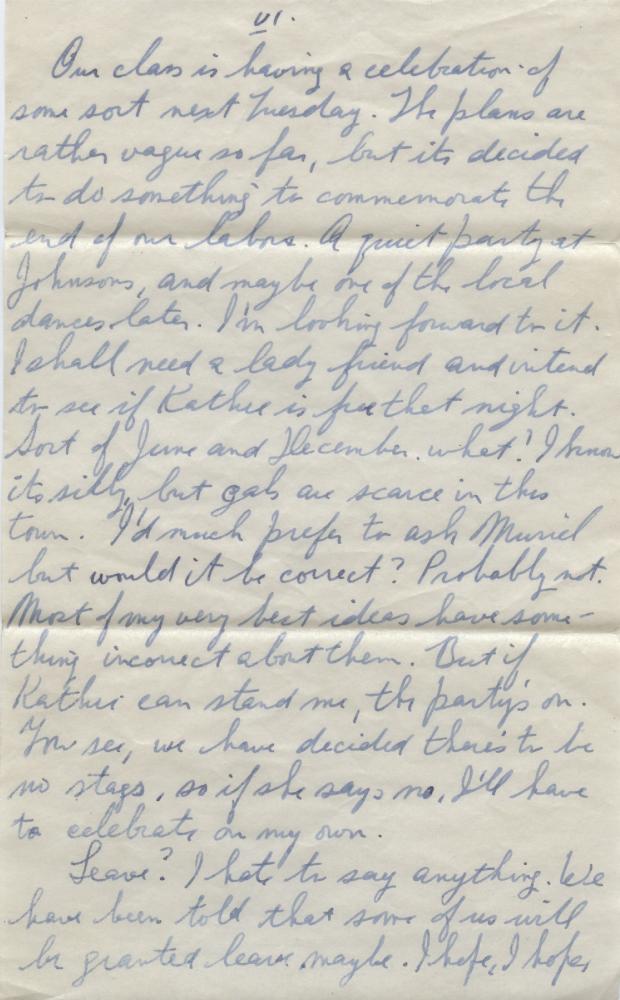 VI.
Our class is having a celebration of
some sort next Tuesday. The plans are
rather vague so far, but its decided
to do something to commemorate the
end of our labors. A quiet party at
Johnsons, and maybe one of the local
dances later. I'm looking forward to it.
I shall need a lady friend and intend
to see if Kathie is free that night.
Sort of June and December, what! I know
its silly, but gals are scarce in this
town. I'd much prefer to ask Muriel
but would it be correct? Probably not.
Most of my very best ideas have some-
thing incorrect about them. But if
Kathie can stand me, the party's on.
You see, we have decided there's to be
no stags, so if she says no, I'll have
to celebrate on my own.
Leave? I hate to say anything. We
have been told that some of us will
be granted leave, maybe. I hope, I hope,